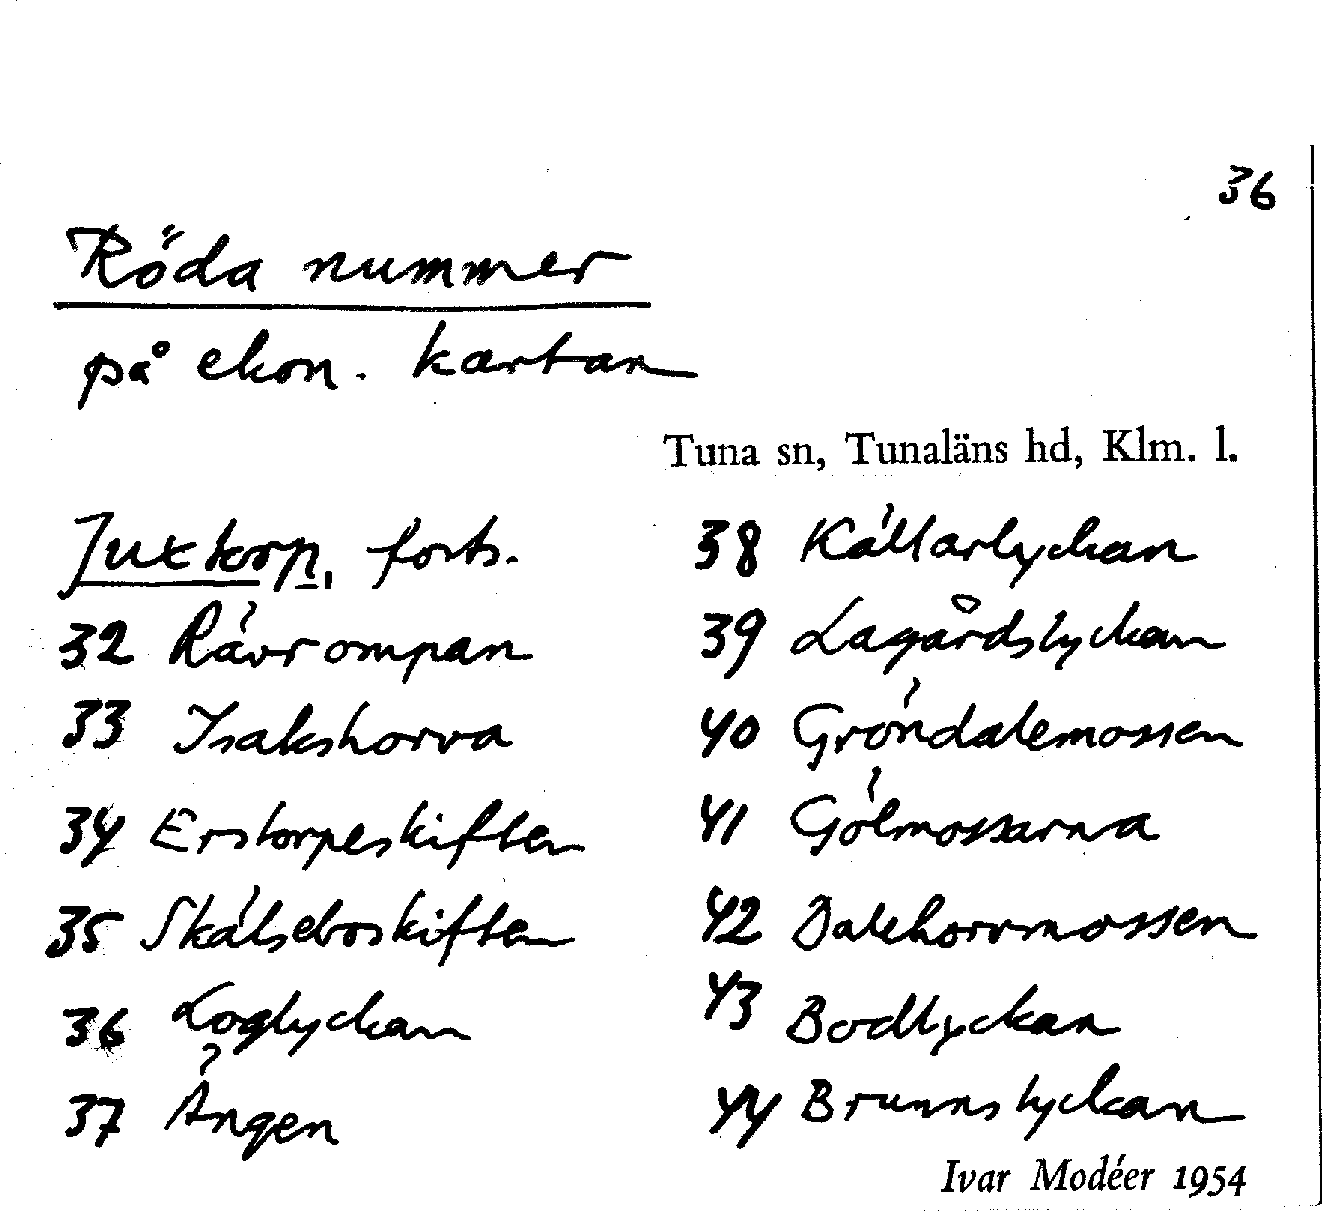 36
Röda nummer
på ekon. kartan
Tuna sn, Tunaläns hd, Klm. l.
Juxtorp, forts.
32 Rävrompan
33 Isakshorva
34 Erstorpeskiften
35 Skälseboskiften
36 Loglyckan
37 Ängen
38 Källarlyckan
39 Lagårdslyckan
40 Gröndalemossen
41 Gölmossarna
42 Dalehorvmossen
43 Bodlyckan
44 Brunnslyckan
Ivar Modéer 1954